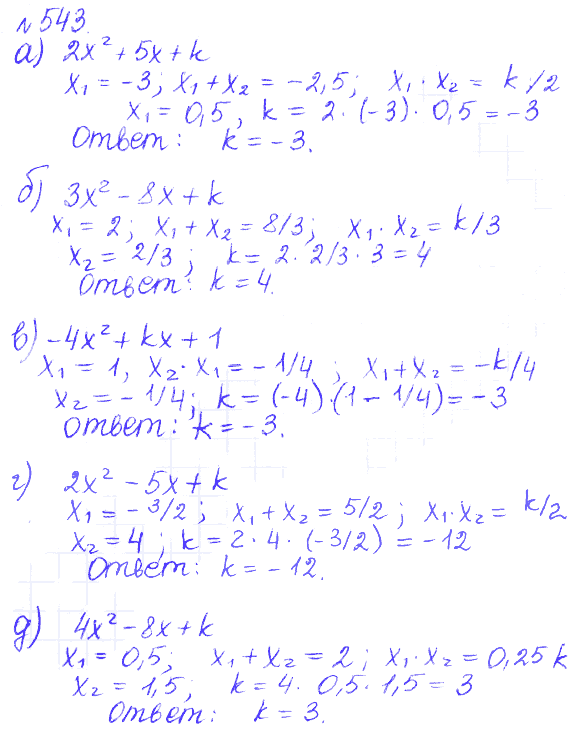 №543.
а) 2x² + 5x + k
x₁ = -3; x₁ + x₂ = -2,5; x₁ · x₂ = k/2
x₁ = 0,5, k = 2 · (-3) · 0,5 = -3
Ответ: k = -3.
б) 3x² - 8x + k
x₁ = 2; x₁ + x₂ = 8/3; x₁ · x₂ = k/3
x₂ = 2/3; k = 2 · 2/3 · 3 = 4
Ответ: k = 4.
в) -4x² + kx + 1
x₁ = 1, x₂ · x₁ = -1/4; x₁ + x₂ = -k/4
x₂ = -1/4; k = (-4) · (1 - 1/4) = -3
Ответ: k = -3.
г) 2x² - 5x + k
x₁ = -3/2; x₁ + x₂ = 5/2; x₁ · x₂ = k/2
x₂ = 4; k = 2 · 4 · (-3/2) = -12
Ответ: k = -12.
д) 4x² - 8x + k
x₁ = 0,5; x₁ + x₂ = 2; x₁ · x₂ = 0,25k
x₂ = 1,5; k = 4 · 0,5 · 1,5 = 3
Ответ: k = 3.